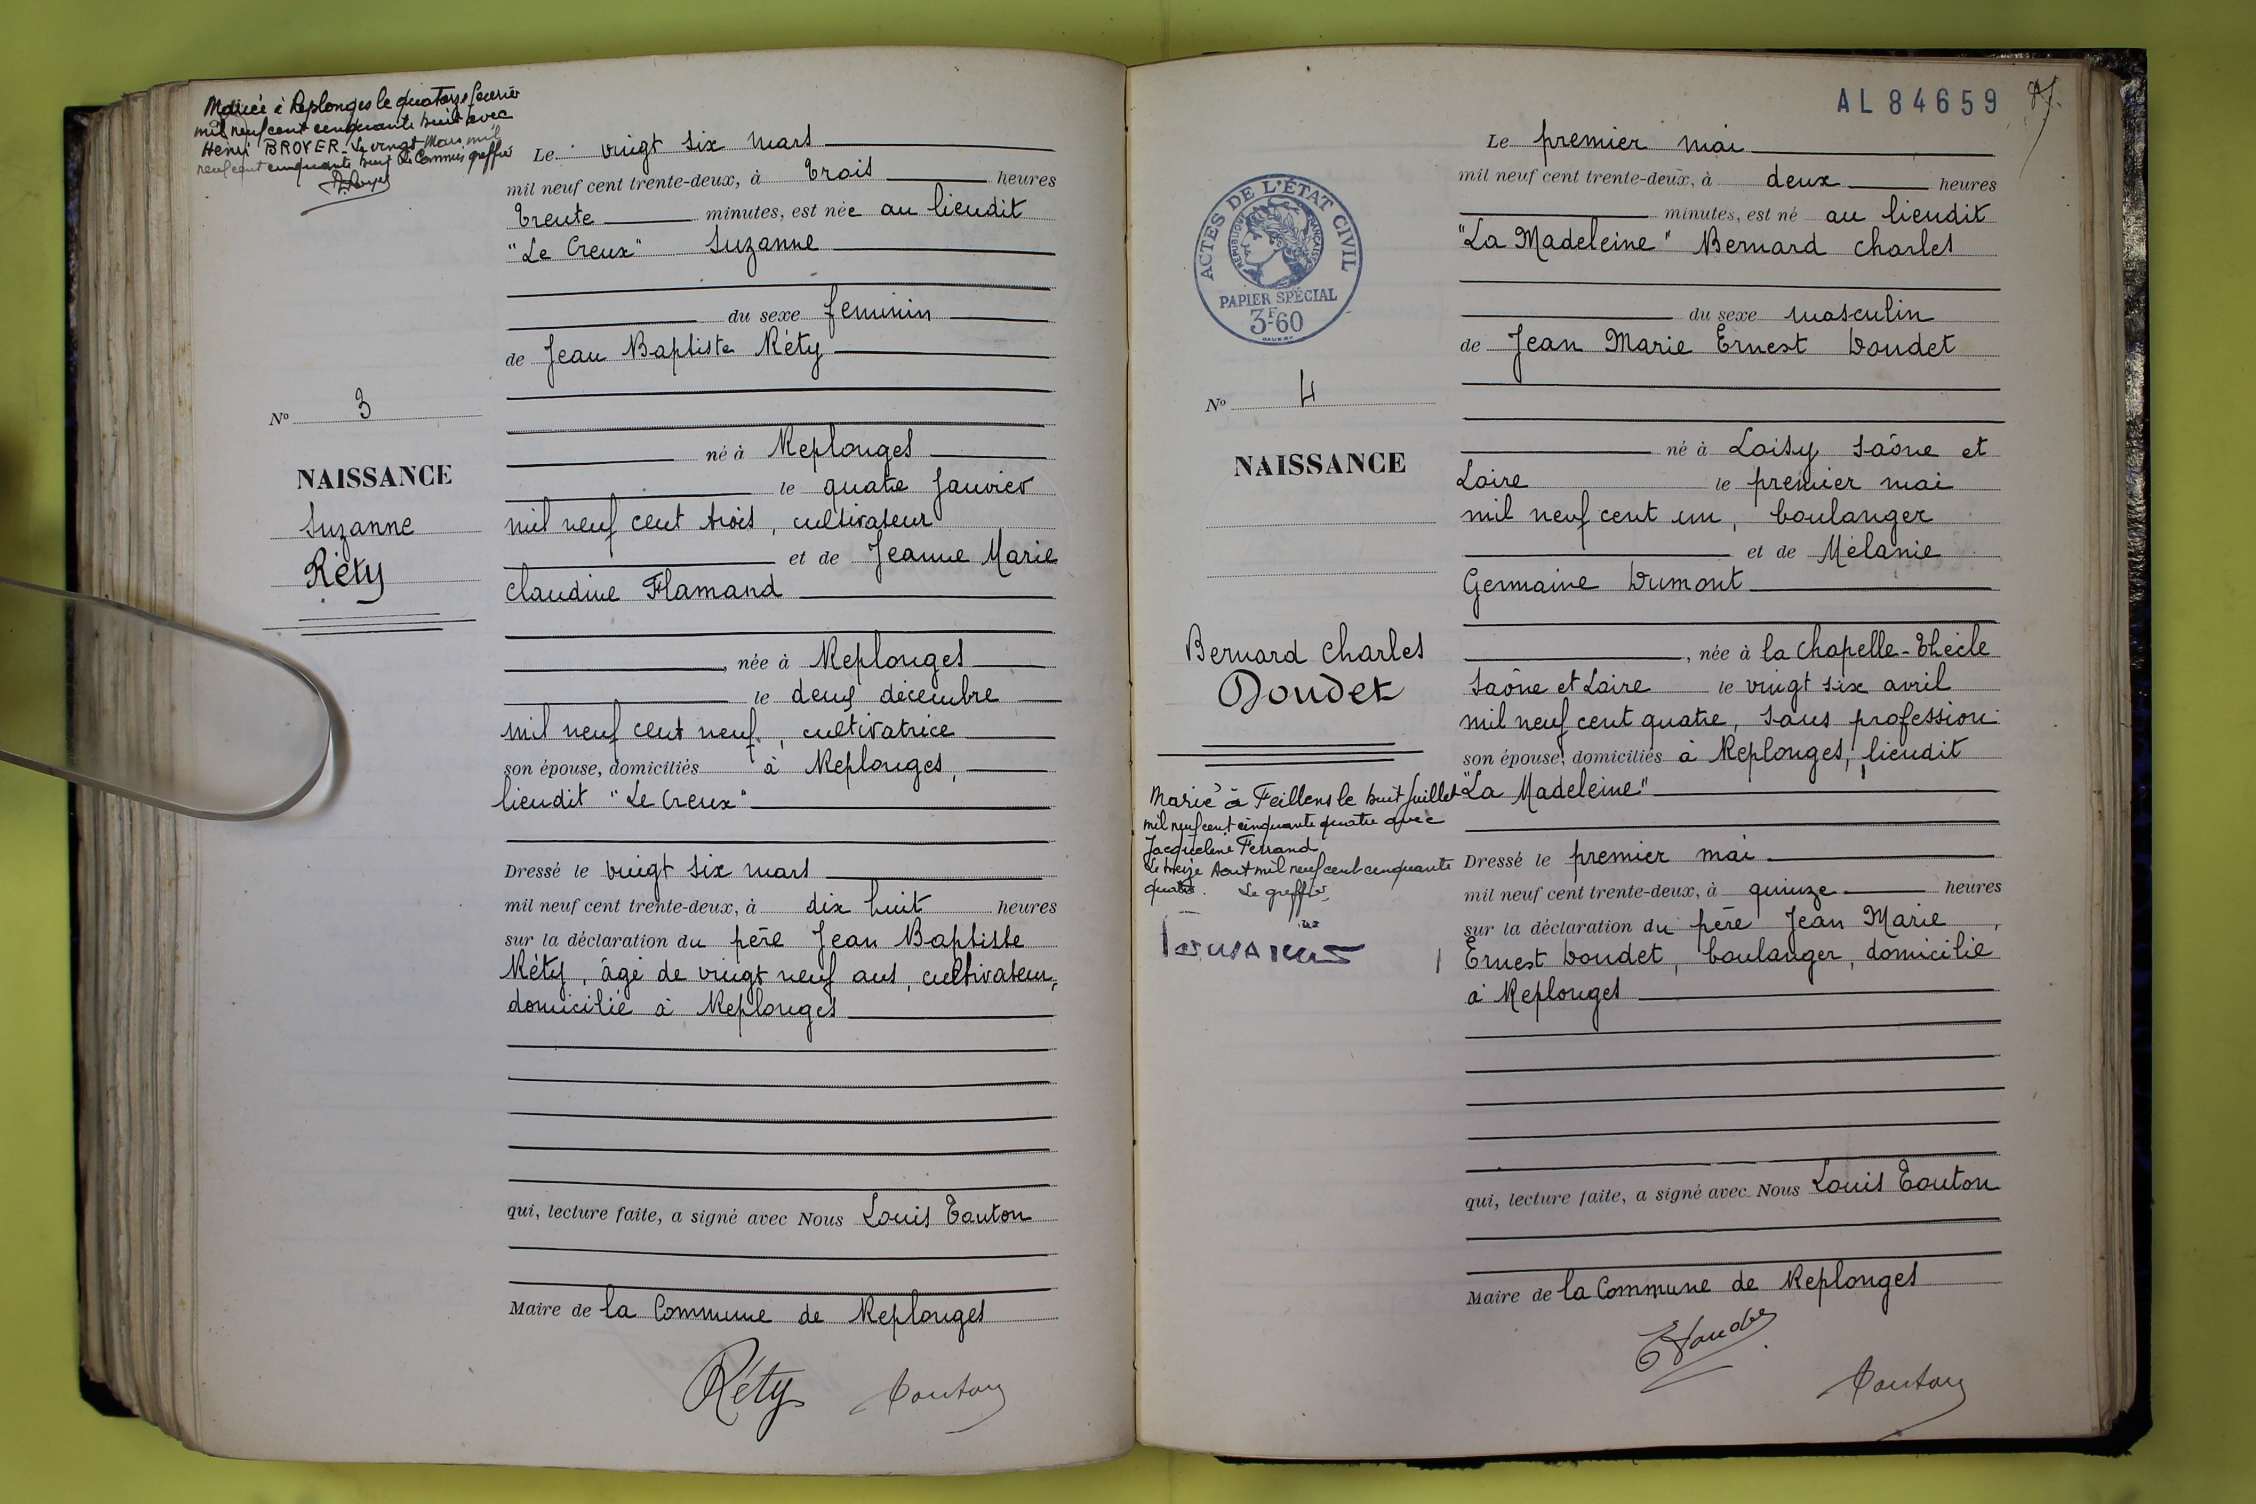 Mariée à Replonges le quatorze février
mil neuf cent cinquante huit avec
Henri BROYER. Le vingt Mars mil
neuf cent cinquante huit Le Commis greffier
Le vingt six mars
mil neuf cent trente-deux, à trois heures
trente minutes, est née au lieudit
"Le Creux" Suzanne
du sexe feminin
de Jean Baptiste Réty
né à Replonges
le quatre Janvier
mil neuf cent trois, cultivateur
et de Jeanne Marie
Claudine Flamand
, née à Replonges
le deux décembre
mil neuf cent neuf, cultivatrice
son épouse, domiciliés à Replonges,
lieudit "Le Creux"
Dressé le vingt six mars
mil neuf cent trente-deux, à dix huit heures
sur la déclaration du père Jean Baptiste
Réty, âgé de vingt neuf ans, cultivateur,
domicilié à Replonges
qui, lecture faite, a signé avec Nous Louis Touton
Maire de la Commune de Replonges
Réty Touton
N° 3
NAISSANCE
Suzanne
Réty
AL 84659
ACTES DE L'ÉTAT CIVIL
RÉPUBLIQUE FRANÇAISE
PAPIER SPÉCIAL
3F60
N° 4
NAISSANCE
Bernard Charles
Doudet
Marié à Feillens le huit Juillet
mil neuf cent cinquante quatre avec
Jacqueline Ferrand
Le treize Aout mil neuf cent cinquante
quatre. Le greffier
Le premier mai
mil neuf cent trente-deux, à deux heures
minutes, est né au lieudit
"La Madeleine" Bernard Charles
du sexe masculin
de Jean Marie Ernest Doudet
né à Loisy Saône et
Loire le premier mai
mil neuf cent un, boulanger
et de Mélanie
Germaine Dumont
, née à la Chapelle-Thècle
Saône et Loire le vingt six avril
mil neuf cent quatre, sans profession
son épouse, domiciliés à Replonges, lieudit
"La Madeleine"
Dressé le premier mai
mil neuf cent trente-deux, à quinze heures
sur la déclaration du père Jean Marie
Ernest Doudet, boulanger, domicilié
à Replonges
qui, lecture faite, a signé avec Nous Louis Touton
Maire de la Commune de Replonges
E Doudet
Touton